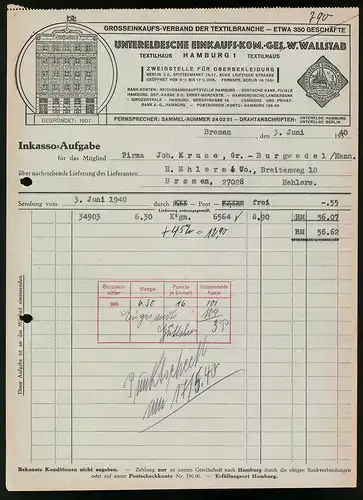 790
GROSSEINKAUFS-VERBAND DER TEXTILBRANCHE – ETWA 350 GESCHÄFTE
UNTERELBESCHE EINKAUFS-KOM.-GES. W. WALLSTAB
TEXTILHAUS HAMBURG 1 TEXTILHAUS
ZWEIGSTELLE FÜR OBERBEKLEIDUNG
BERLIN C 2, SPITTELMARKT 16-17, ECKE LEIPZIGER STRASSE
GEÖFFNET VON 9-17½ UHR, FERNSPR. BERLIN
BANK-KONTEN: REICHSBANKHAUPTSTELLE HAMBURG – DEUTSCHE BANK, FILIALE
HAMBURG, DEPOSITENKASSE G, ERNST-MERCKSTR. – HAMBURGISCHE LANDESBANK
– GIROZENTRALE – HAMBURG, BERGSTRASSE 16 – COMMERZ- UND PRIVAT-
BANK A.-G., HAMBURG – POSTSCHECK-KONTO: HAMBURG 196 00
GEGRÜNDET: 1907
FERNSPRECHER: SAMMEL-NUMMER 24 02 51 – DRAHTANSCHRIFTEN: UNTERELBE HAMBURG
UNTERELBE BERLIN
Bremen, den 3. Juni 1940
Inkasso-Aufgabe
für das Mitglied Firma Joh. Kruse, Gr. - Burgwedel/Hann.
über nachstehende Lieferung des Lieferanten: H. Ehlers & Co., Breitenweg 10
Bremen, 27028 Hehlers.
Sendung vom 3. Juni 1940 durch frei -.55
Lieferung ordnungsgemäß.
34903 6.30 Kgn. 6564 8.90 RM 56.07
RM 56.62
+45% = 12,90
Gruppen-ziffer Menge Punkte je Einheit Einzusendende Punkte
806 6.30 16 101
109
3 P
Punktscheck
am 17/5.40
Diese Aufgabe ist an das Mitglied einzusenden.
Bekannte Konditionen nicht angeben. – Zahlung nur an unsere Gesellschaft nach Hamburg durch die obigen Bankverbindungen
oder auf unser Postscheckkonto Nr. 196 00. – Erfüllungsort Hamburg.